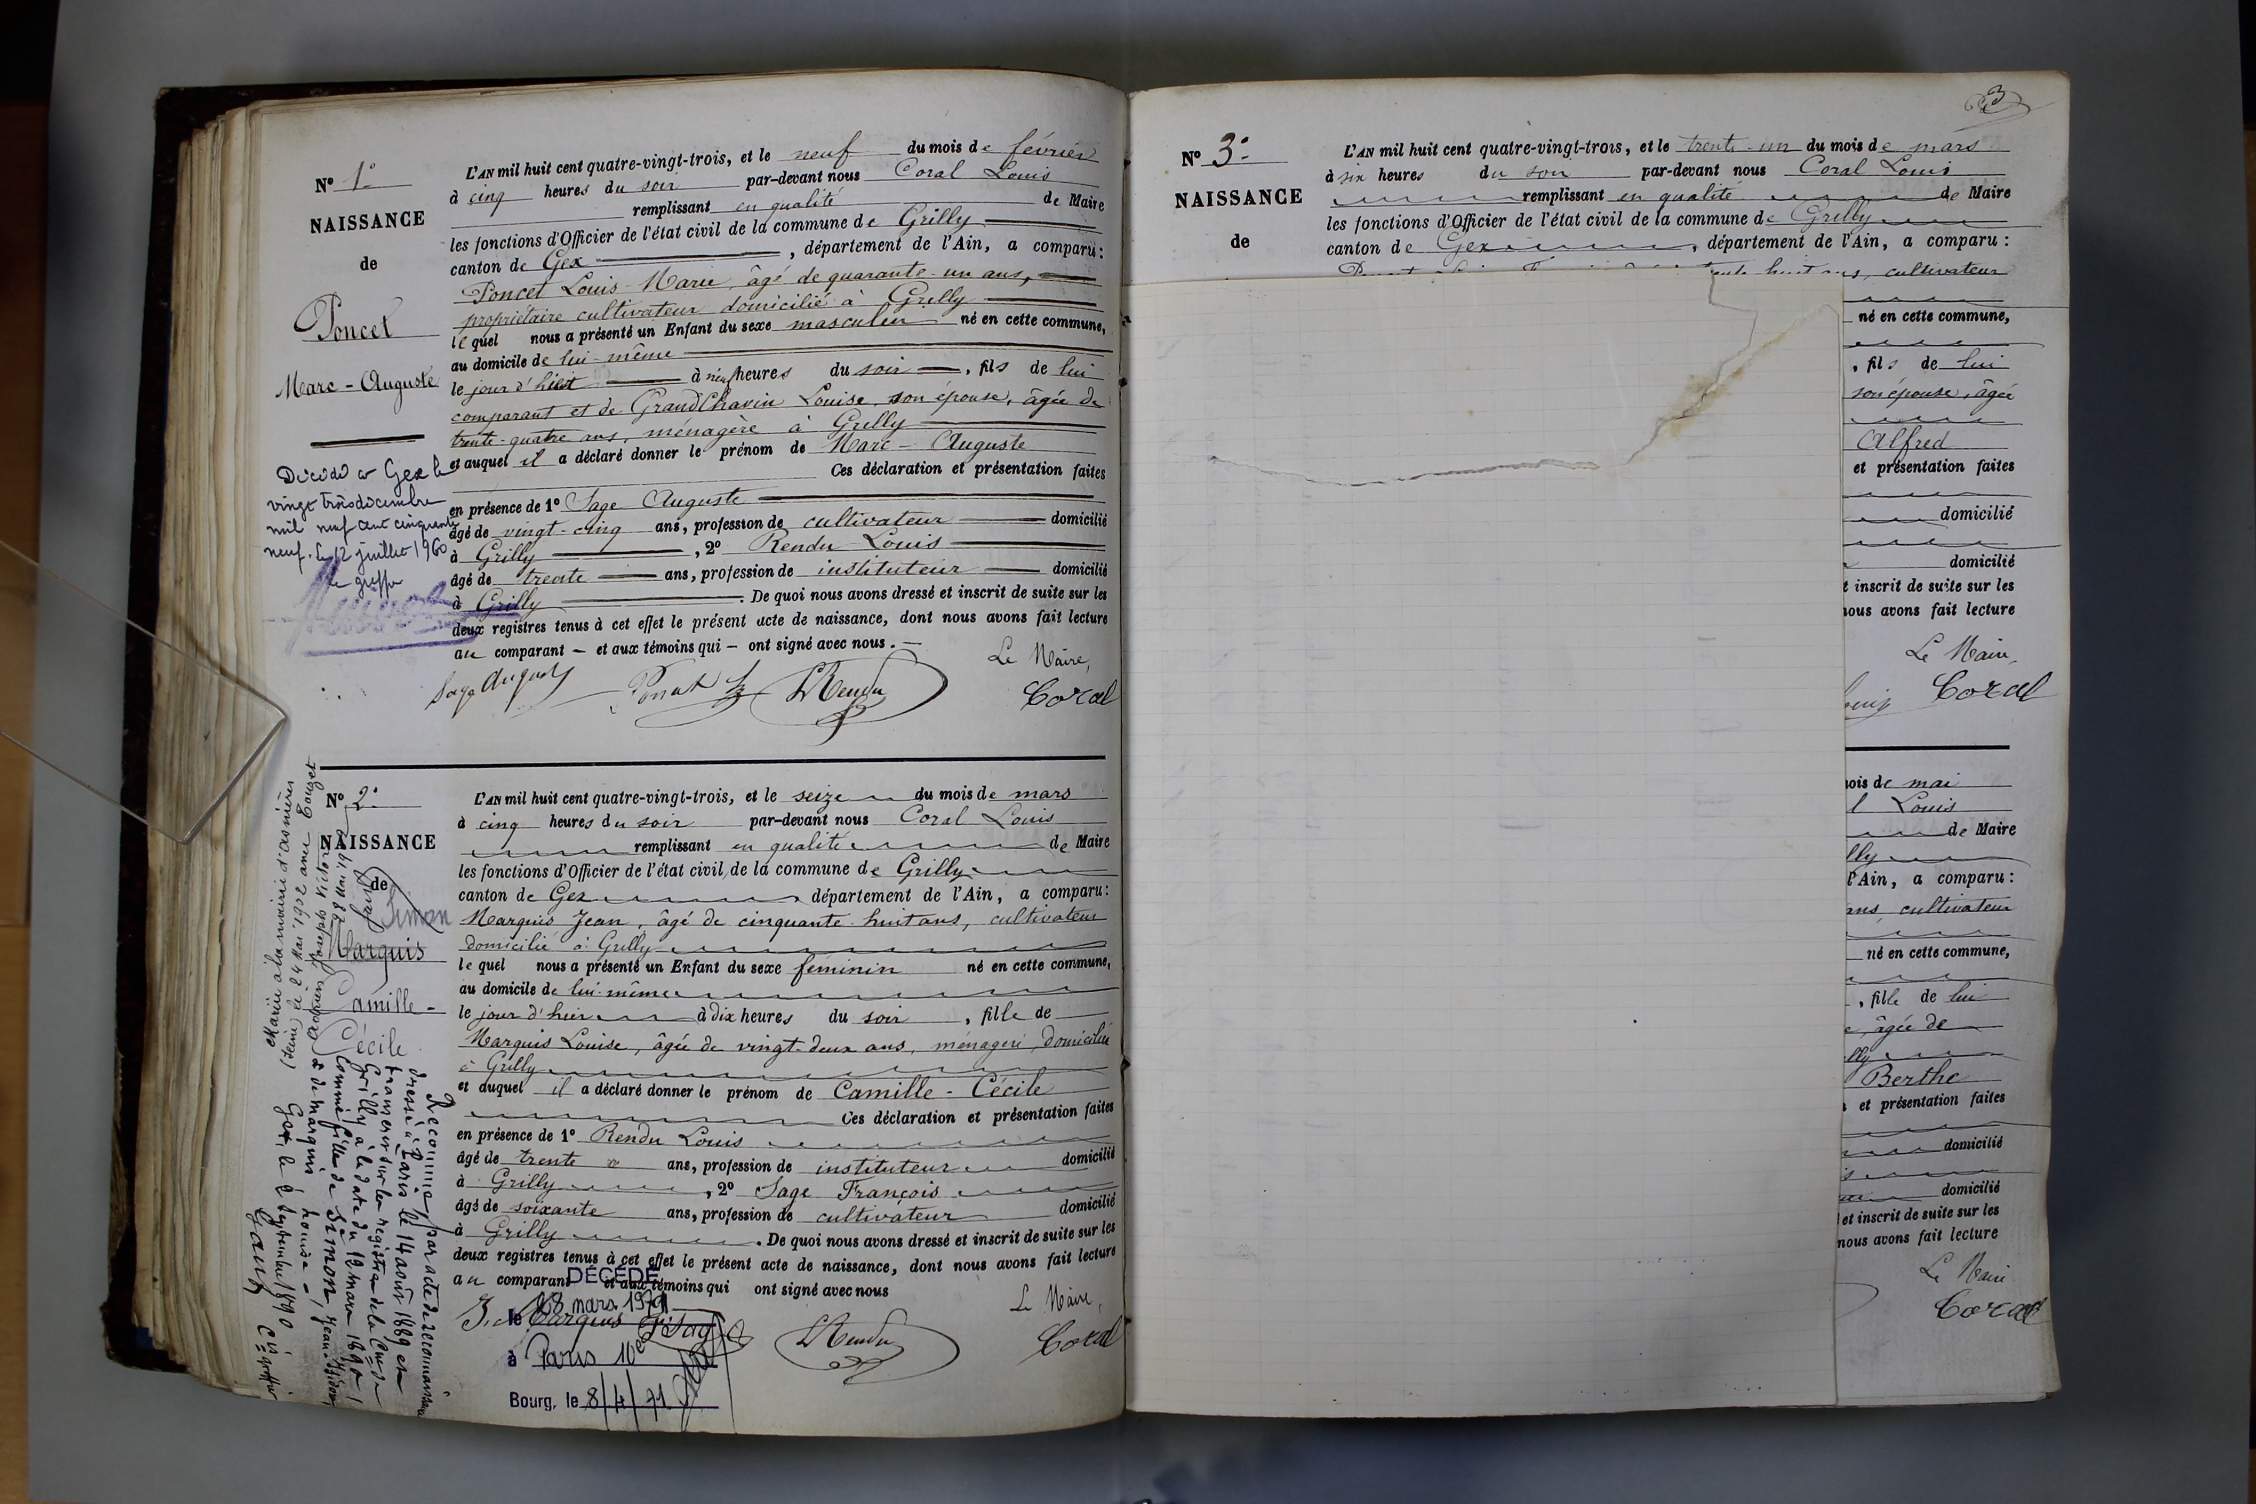 N° 1°
NAISSANCE
de
Poncet
Marc - Auguste
Décédé à Gex le
vingt trois décembre
mil neuf cent cinquante
neuf. Le 12 juillet 1960
Le greffier
L'AN mil huit cent quatre-vingt-trois, et le neuf du mois de février
à cinq heures du soir par-devant nous Coral Louis
remplissant en qualité de Maire
les fonctions d'Officier de l'état civil de la commune de Grilly
canton de Gex, département de l'Ain, a comparu :
Poncet Louis Marie, âgé de quarante-un ans,
propriétaire cultivateur domicilié à Grilly
lequel nous a présenté un Enfant du sexe masculin né en cette commune,
au domicile de lui-même
le jour d'hier à neuf heures du soir, fils de lui
comparant et de GrandChavin Louise, son épouse, âgée de
trente-quatre ans, ménagère à Grilly
et auquel il a déclaré donner le prénom de Marc - Auguste
Ces déclaration et présentation faites
en présence de 1° Sage Auguste
âgé de vingt-cinq ans, profession de cultivateur domicilié
à Grilly, 2° Rendu Louis
âgé de trente ans, profession de instituteur domicilié
à Grilly. De quoi nous avons dressé et inscrit de suite sur les
deux registres tenus à cet effet le présent acte de naissance, dont nous avons fait lecture
au comparant - et aux témoins qui - ont signé avec nous.
Le Maire,
Sage August Poncet LRendu Coral
N° 2°
NAISSANCE
de
Simon
Marquis
Camille -
Cécile
Mariée à la mairie d'Asnières
(Seine) le 24 Mai 1902 avec Couget
Adrien Joseph Victor
Reconnue par acte de reconnaissance
dressé à Paris le 14 août 1889 et
transcrit sur les registres de la Cne de
Grilly à la date du 12 mars 1890
comme fille de Simon Jean-Isidore
& de Marquis Louise
Gex, le 2 septembre 1890
L'AN mil huit cent quatre-vingt-trois, et le seize du mois de mars
à cinq heures du soir par-devant nous Coral Louis
remplissant en qualité de Maire
les fonctions d'Officier de l'état civil de la commune de Grilly
canton de Gex département de l'Ain, a comparu :
Marquis Jean, âgé de cinquante-huit ans, cultivateur
domicilié à Grilly
lequel nous a présenté un Enfant du sexe féminin né en cette commune,
au domicile de lui-même
le jour d'hier à dix heures du soir, fille de
Marquis Louise, âgée de vingt-deux ans, ménagère, domiciliée
à Grilly
et auquel il a déclaré donner le prénom de Camille - Cécile
Ces déclaration et présentation faites
en présence de 1° Rendu Louis
âgé de trente ans, profession de instituteur domicilié
à Grilly, 2° Sage François
âgé de soixante ans, profession de cultivateur domicilié
à Grilly. De quoi nous avons dressé et inscrit de suite sur les
deux registres tenus à cet effet le présent acte de naissance, dont nous avons fait lecture
au comparant et aux témoins qui ont signé avec nous
DÉCÉDÉ
Le Maire,
le 18 mars 1971
J. Marquis F. Sage LRendu Coral
à Paris 10e
Bourg, le 8/4/71
3
N° 3°
NAISSANCE
de
L'AN mil huit cent quatre-vingt-trois, et le trente-un du mois de mars
à six heures du soir par-devant nous Coral Louis
remplissant en qualité de Maire
les fonctions d'Officier de l'état civil de la commune de Grilly
canton de Gex, département de l'Ain, a comparu :
huit ans, cultivateur
né en cette commune,
, fils de lui
son épouse, âgée
Alfred
et présentation faites
domicilié
domicilié
inscrit de suite sur les
avons fait lecture
Le Maire,
Coral
de mai
Louis
de Maire
l'Ain, a comparu :
ans, cultivateur
né en cette commune,
, fille de lui
, âgée de
Berthe
et présentation faites
domicilié
domicilié
et inscrit de suite sur les
nous avons fait lecture
Le Maire
Coral